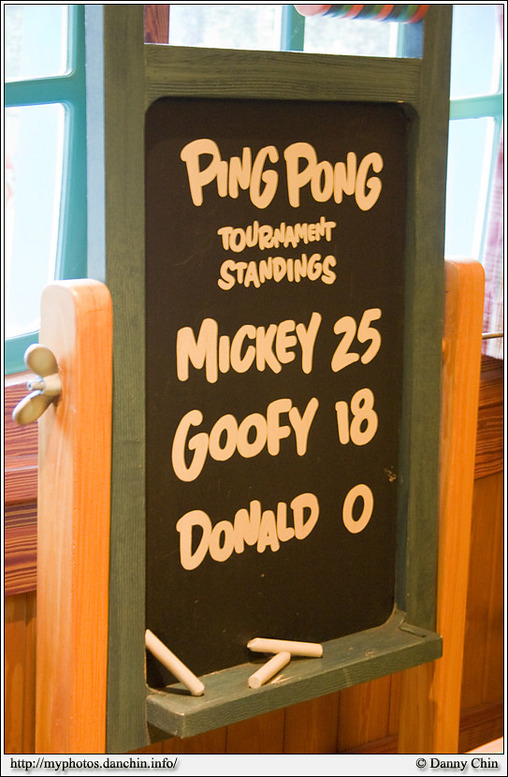 PING PONG
TOURNAMENT
STANDINGS
MICKEY 25
GOOFY 18
DONALD 0
http://myphotos.danchin.info/
© Danny Chin